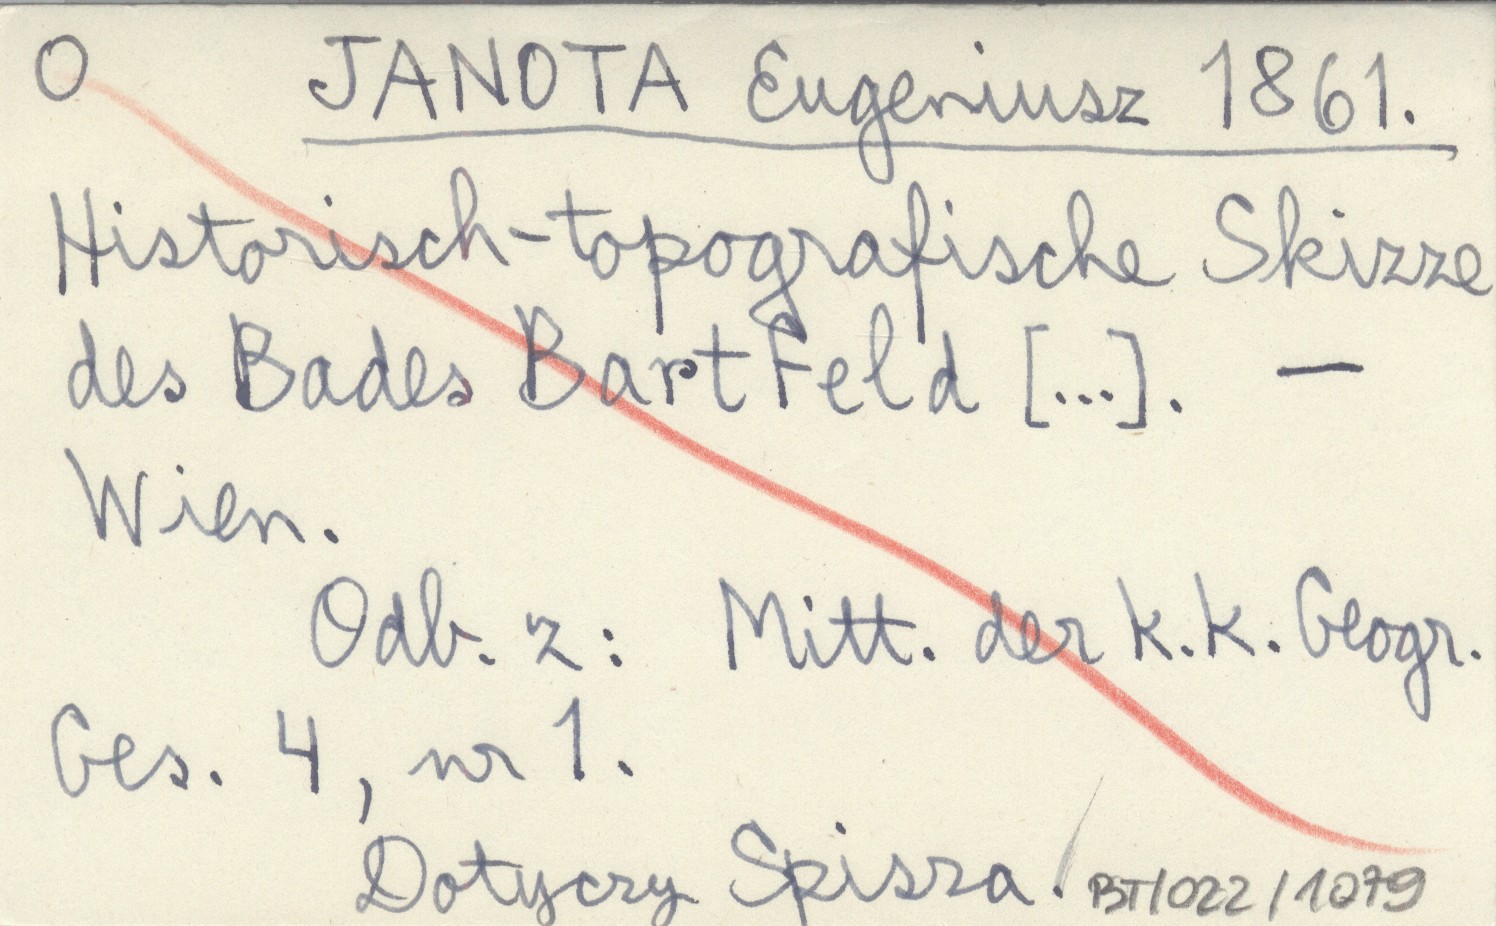 O JANOTA Eugeniusz 1861.
Historisch-topografische Skizze
des Bades Bartfeld [...]. —
Wien.
Odb. z: Mitt. der k.k. Geogr.
Ges. 4, nr 1.
Dotyczy Spisza. BT/022/1079